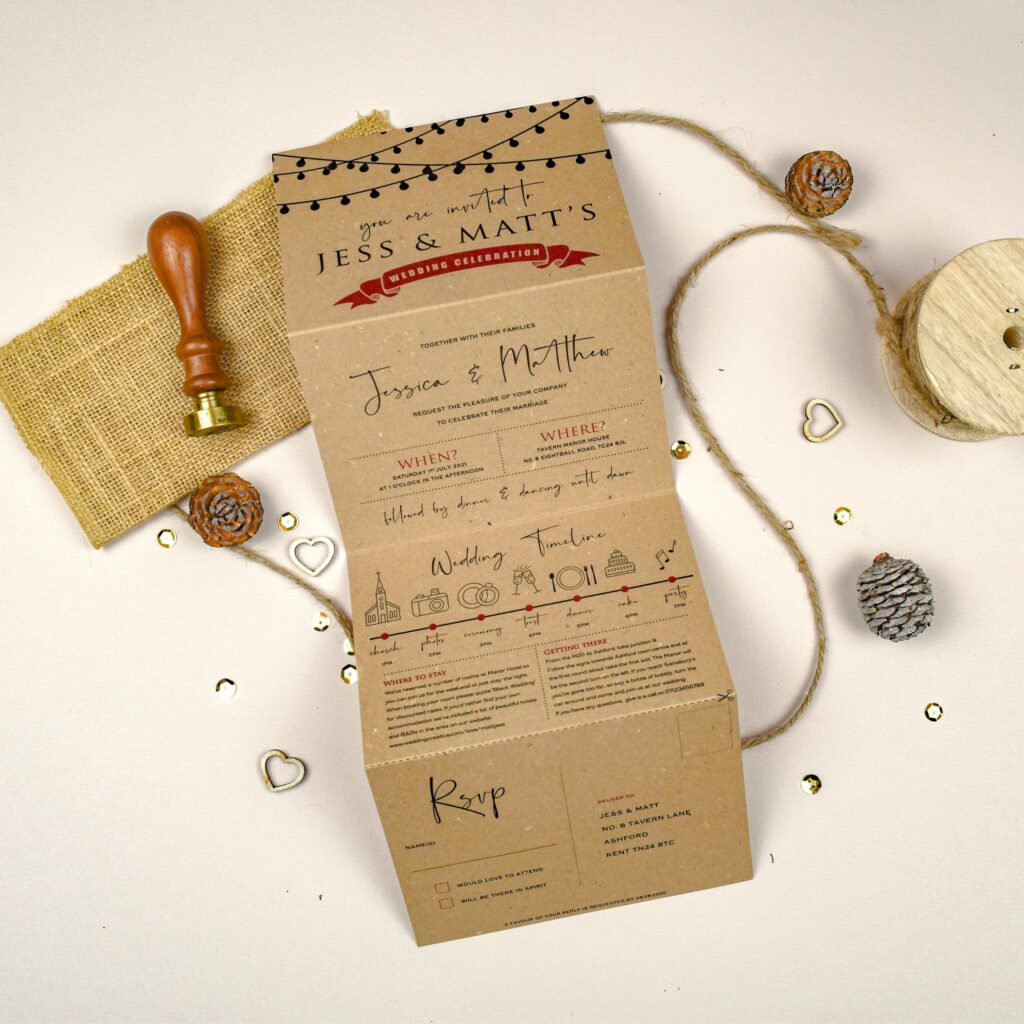 you are invited to
JESS & MATT'S
WEDDING CELEBRATION
TOGETHER WITH THEIR FAMILIES
Jessica & Matthew
REQUEST THE PLEASURE OF YOUR COMPANY
TO CELEBRATE THEIR MARRIAGE
WHEN?
SATURDAY 1ST JULY 2021
AT 1 O'CLOCK IN THE AFTERNOON
WHERE?
TAVERN MANOR HOUSE
NO. 8 EIGHTBALL ROAD, TC24 8JL
followed by dinner & dancing until dawn
Wedding Timeline
church photos ceremony toast dinner cake party
1PM 2PM 3PM 4PM 5PM 6PM 7PM
WHERE TO STAY
We've reserved a number of rooms at Manor Hotel so
you can join us for the weekend or just stay the night.
When booking your room please quote 'Black Wedding'
for discounted rates. If you'd rather find your own
accommodation we've included a list of beautiful hotels
and B&Bs in the area on our website:
www.weddingcreative.com/love/mattjess
GETTING THERE
From the M20 at Ashford, take junction 8
Follow the signs towards Ashford town centre and at
the first round about take the first exit. The Manor will
be the second turn on the left. If you reach Sainsbury's
you've gone too far, so buy a bottle of bubbly, turn the
car around and come and join us at our wedding.
If you have any questions, give is a call on 07123456789
Rsvp
NAME(S)
WOULD LOVE TO ATTEND
WILL BE THERE IN SPIRIT
DELIVER TO:
JESS & MATT
NO. 8 TAVERN LANE
ASHFORD
KENT TN24 8TC
A FAVOUR OF YOUR REPLY IS REQUESTED BY 08.08.2020